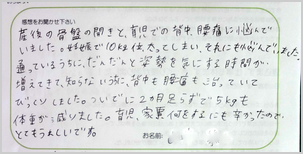 感想をお聞かせ下さい
産後の骨盤の開きと、育児での背中、腰痛に悩んで
いました。妊娠で10kg位太ってしまい、それにも悩んでいました。
通っているうちに、だんだんと姿勢を気にする時間が
増えてきて、知らないうちに、背中も腰痛も治っていて
びっくりしました。ついでに2カ月足らずで5kgも
体重が減りました。育児、家事、何をするにも楽なので、
とてもうれしいですね
お名前: